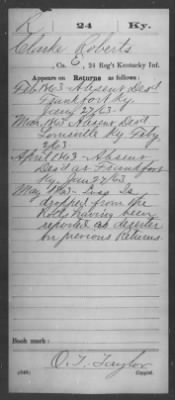 R 24 Ky.
Clarke Roberts
, Co. E, 24 Reg't Kentucky Inf.
Appears on Returns as follows:
Feb 1863 Absent Des'd
Frankfort Ky.
Jany 27/63
Mar. 1863 Absent Des'd
Louisville Ky Feby
2/63
April 1863 - Absent
Des'd at Frankfort
Ky. Jan 27/63
May 1863 - Is
dropped from the
Rolls having been
reported as deserter
on previous Returns.
Book mark:
O. T. Taylor
(546) Copyist.